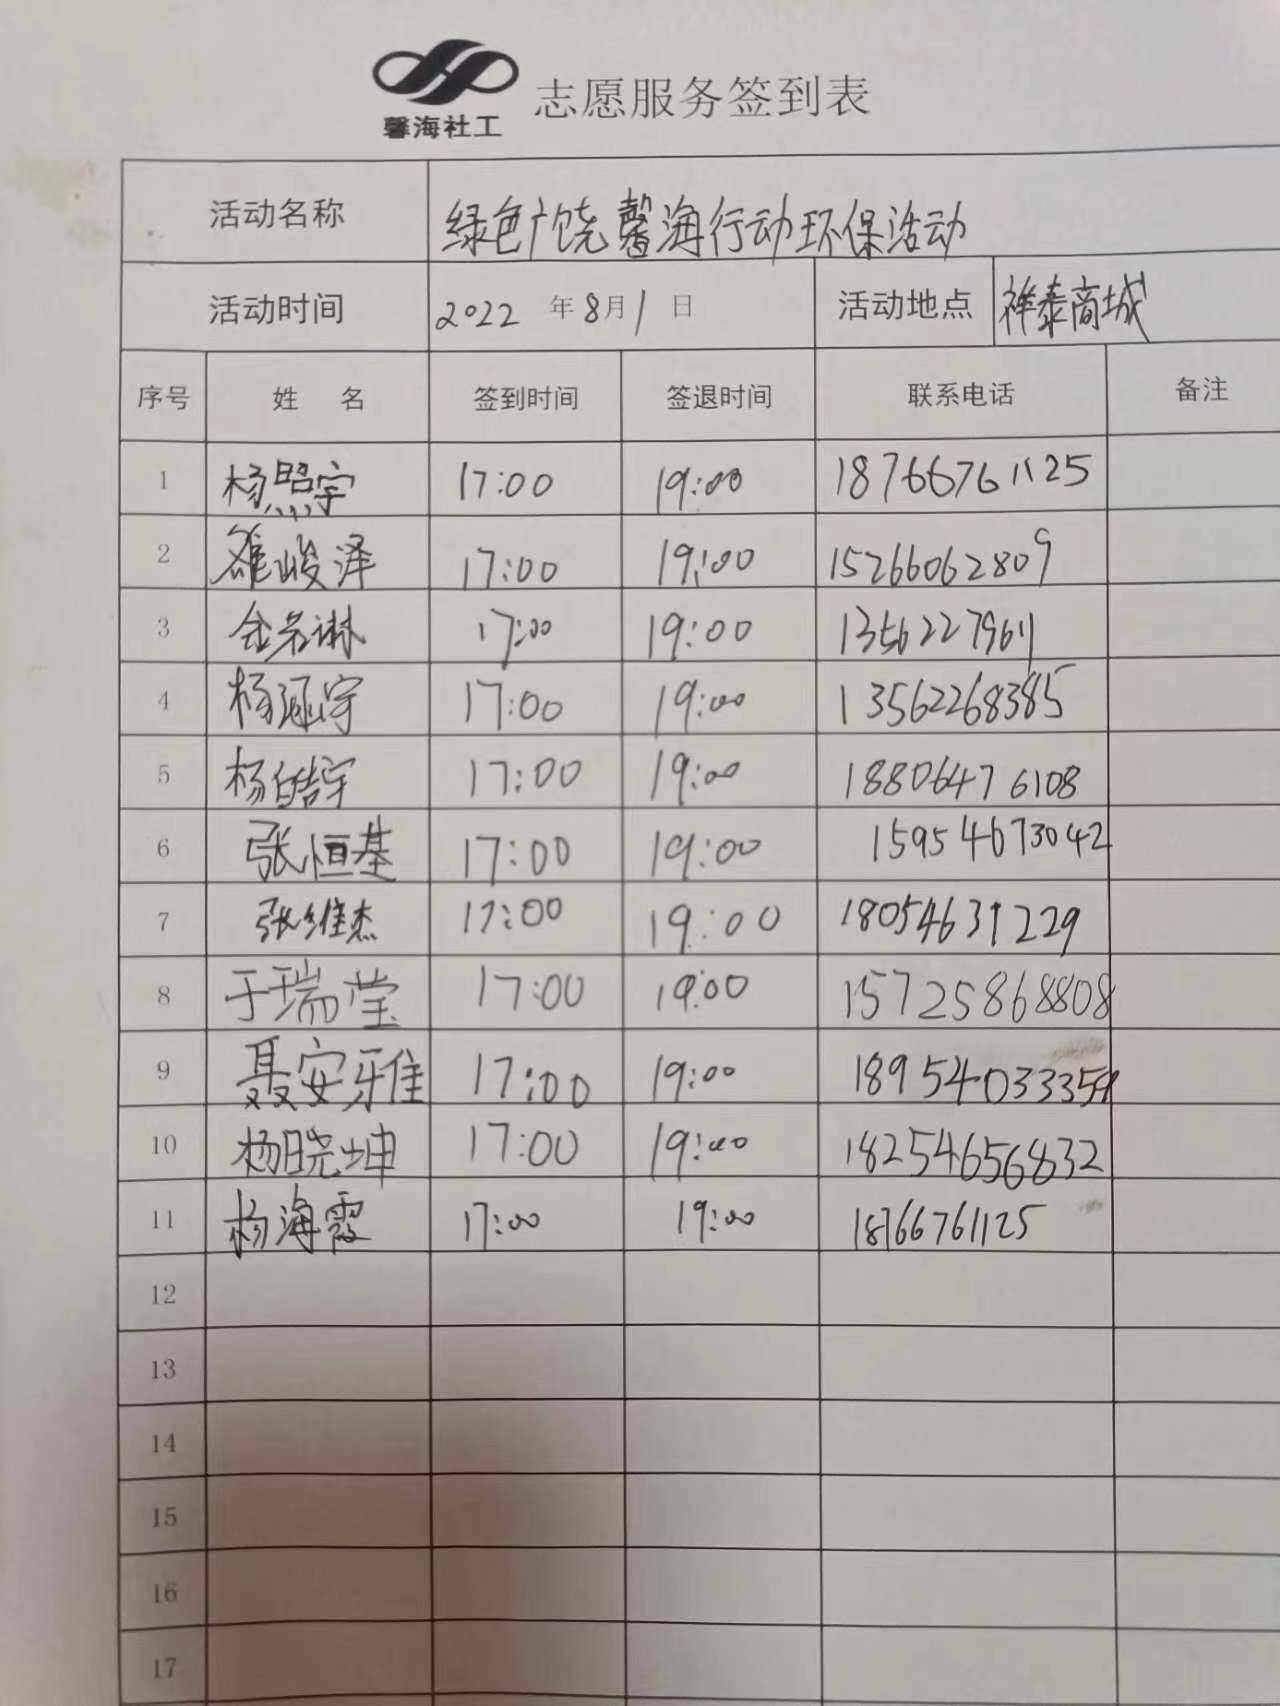 馨海社工
志愿服务签到表
活动名称 绿色广饶馨海行动环保活动
活动时间 2022 年 8月1日 活动地点 祥泰商城
序号 姓 名 签到时间 签退时间 联系电话 备注
1 杨照宇 17:00 19:00 18766761125
2 峻泽 17:00 19:00 15266062809
3 17:00 19:00 13562279611
4 杨涵宇 17:00 19:00 13562268385
5 杨皓宇 17:00 19:00 18806476108
6 张恒基 17:00 19:00 15954673042
7 张维杰 17:00 19:00 18054631229
8 于瑞莹 17:00 19:00 15725868808
9 聂安雅 17:00 19:00
10 杨晓坤 17:00 19:00 18254656832
11 杨海霞 17:00 19:00 18766761125
12
13
14
15
16
17